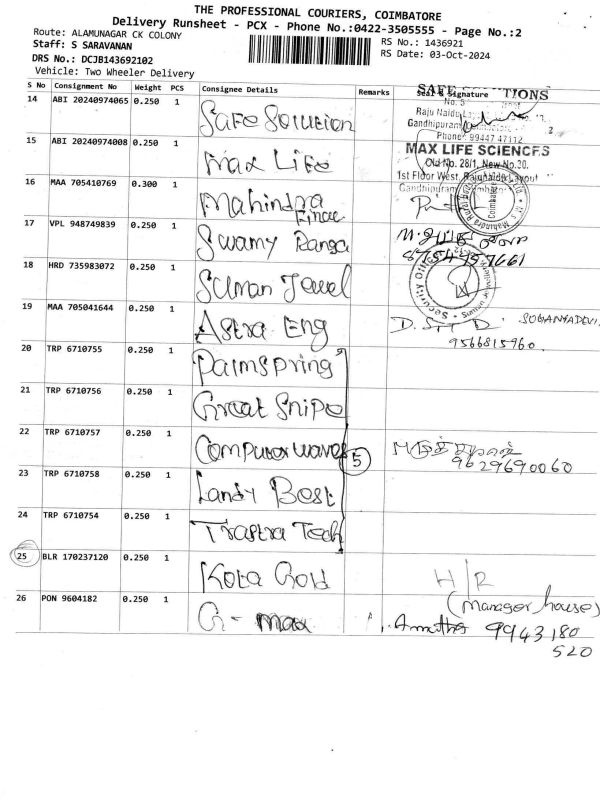 THE PROFESSIONAL COURIERS, COIMBATORE
Delivery Runsheet - PCX - Phone No:0422-3505555 - Page No.:2
Route: ALAMUNAGAR CK COLONY
Staff: S SARAVANAN
RS No.: 1436921
DRS No.: DCJB143692102
RS Date: 03-Oct-2024
Vehicle: Two Wheeler Delivery
S No Consignment No Weight PCS Consignee Details Remarks Seal & Signature
14 ABI 20240974065 0.250 1 Safe Solution
SAFE TIONS
No. 3
Raju Naidu
Gandhipuram
Phone: 99447 47112
15 ABI 20240974008 0.250 1 Max Life
MAX LIFE SCIENCES
Old No. 28/1, New No.30,
1st Floor West, Rajunaidu Layout
Gandhipuram
16 MAA 705410769 0.300 1 Mahindra
Finac
17 VPL 948749839 0.250 1 Swamy Ranga
18 HRD 735983072 0.250 1 Suman Jewel
Security Office
19 MAA 705041644 0.250 1 Astra Eng
SUGANYADEVI
9566815960
20 TRP 6710755 0.250 1 Palmspring
21 TRP 6710756 0.250 1 Great Snipe
22 TRP 6710757 0.250 1 Computer waves 5
9629690060
23 TRP 6710758 0.250 1 Landy Best
24 TRP 6710754 0.250 1 Trastra Tech
25 BLR 170237120 0.250 1 Kota Gold H/R
(Manager house)
26 PON 9604182 0.250 1 G- max 9943180
520